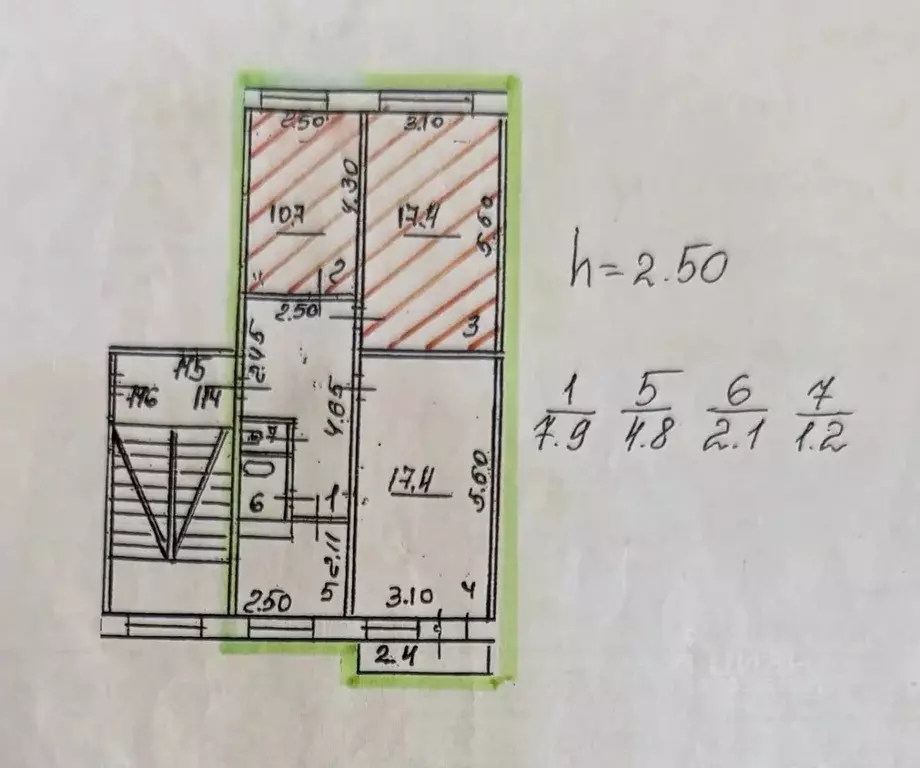 2.50 3.10
4.30
10.7 17.4 5.60
2
2.50 3
h=2.50
2.45
115
116 114
4.85
1 5 6 7
7.9 4.8 2.1 1.2
7
17.4 5.60
6 1
2.11
5
2.50 3.10 4
2.4